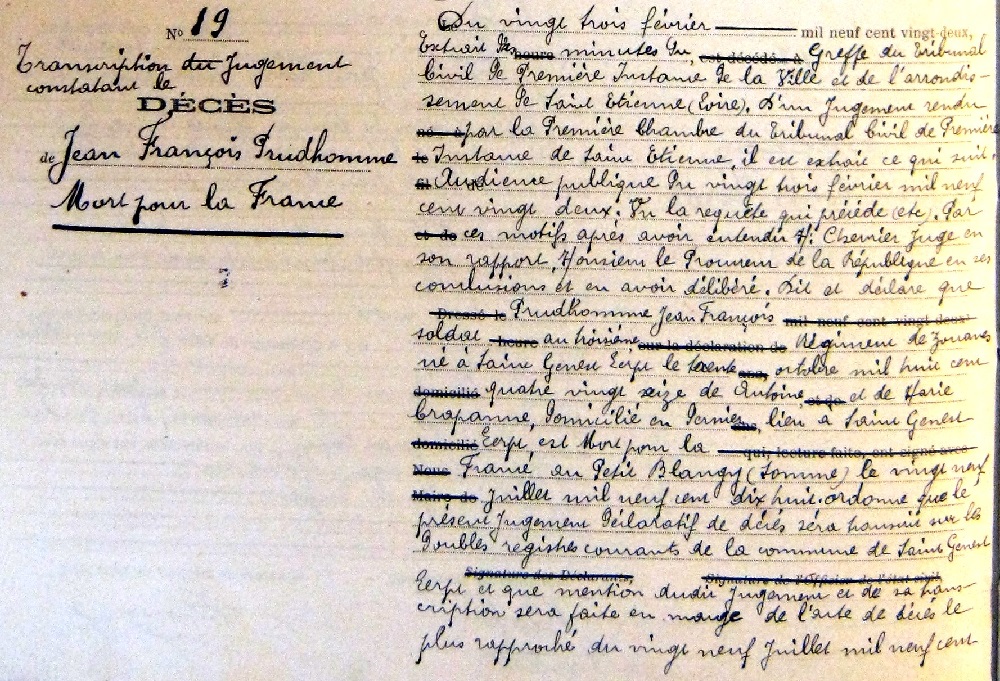 N° 19
Transcription du Jugement
constatant le
DÉCÈS
de Jean François Prudhomme
Mort pour la France
Du vingt trois février mil neuf cent vingt-deux,
heure Extrait des minutes du, est décédé à Greffe du Tribunal
Civil de Première Instance de la Ville et de l'arrondis-
sement de Saint Etienne (Loire). D'un Jugement rendu
né à par la Première Chambre du Tribunal Civil de Première
le Instance de Saint Etienne, il est extrait ce qui suit.
fil de Audience publique du vingt trois février mil neuf
cent vingt deux. Vu la requête qui précède (etc). Par
et de ces motifs après avoir entendu M. Chervier Juge en
son rapport, Monsieur le Procureur de la République en ses
conclusions et en avoir délibéré. Dit et déclare que
Dressé le Prudhomme Jean François mil neuf cent vingt-deux
soldat heure au troisième sur la déclaration de Régiment de Zouaves
né à Saint Genest Lerpt le trente ans, octobre mil huit cent
domicilié quatre vingt seize de Antoine, et de et de Marie
Crapanne, domicilié en dernier ans, lieu à Saint Genest
domicilié Lerpt, est Mort pour la qui, lecture faite, ont signé avec
Nous France au Petit Blangy (Somme) le vingt neuf
Maire de Juillet mil neuf cent dix huit. ordonne que le
présent Jugement déclaratif de décès sera transcrit sur les
doubles registres courants de la commune de Saint Genest
Signature des Déclarants, Signature de l'Officier de l'état civil,
Lerpt et que mention dudit Jugement et de sa trans-
cription sera faite en marge de l'acte de décès le
plus rapproché du vingt neuf Juillet mil neuf cent